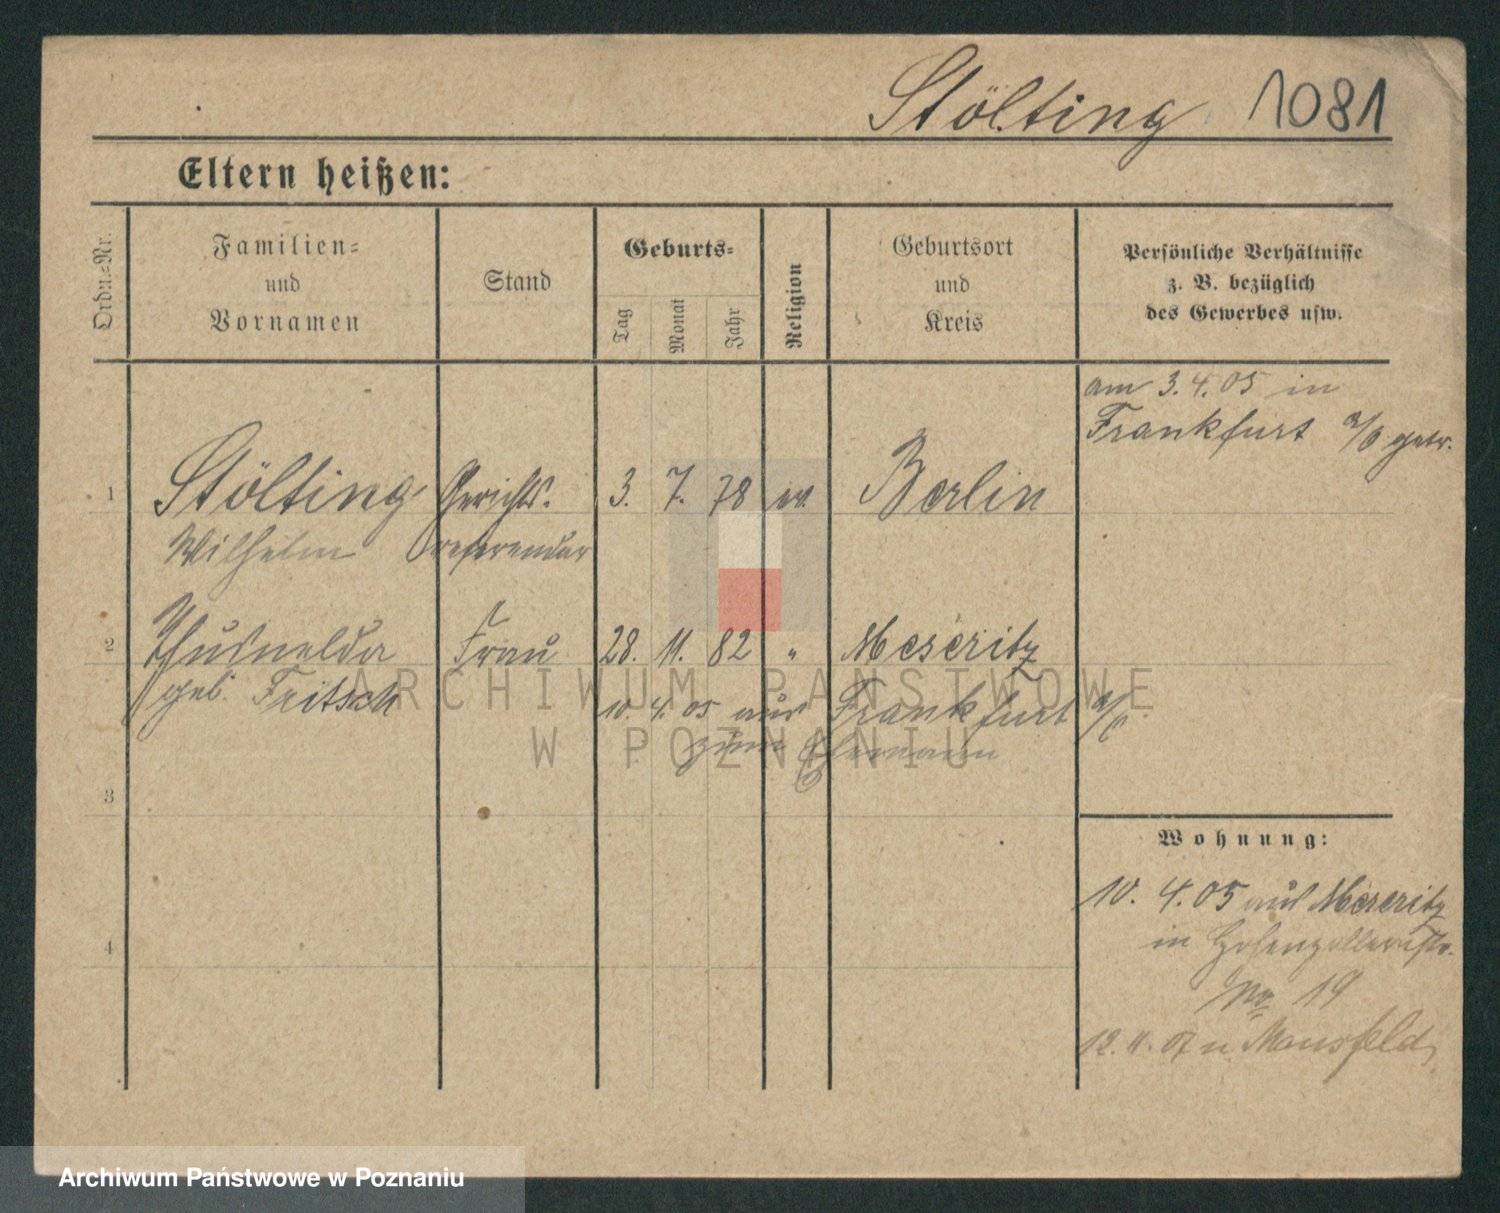 Stölting 1081
Eltern heißen:
Ordn.=Nr.
Familien=
und
Vornamen
Stand
Geburts=
Tag
Monat
Jahr
Religion
Geburtsort
und
Kreis
Persönliche Verhältnisse
z. B. bezüglich
des Gewerbes usw.
am 3. 4. 05 in
Frankfurt a/O getr.
1 Stölting Gerichts. 3. 7. 78 ev. Berlin
Wilhelm referendar
2 Thusnelda Frau 28. 11. 82 " Meseritz
geb. Fritsch
10. 4. 05 aus Frankfurt a/O
zum Ehemann
3
4
Wohnung:
10. 4. 05 aus Meseritz
in Hohenzollernstr.
No 19
12. 11. 07 n. Mansfeld
ARCHIWUM PAŃSTWOWE
W POZNANIU
Archiwum Państwowe w Poznaniu